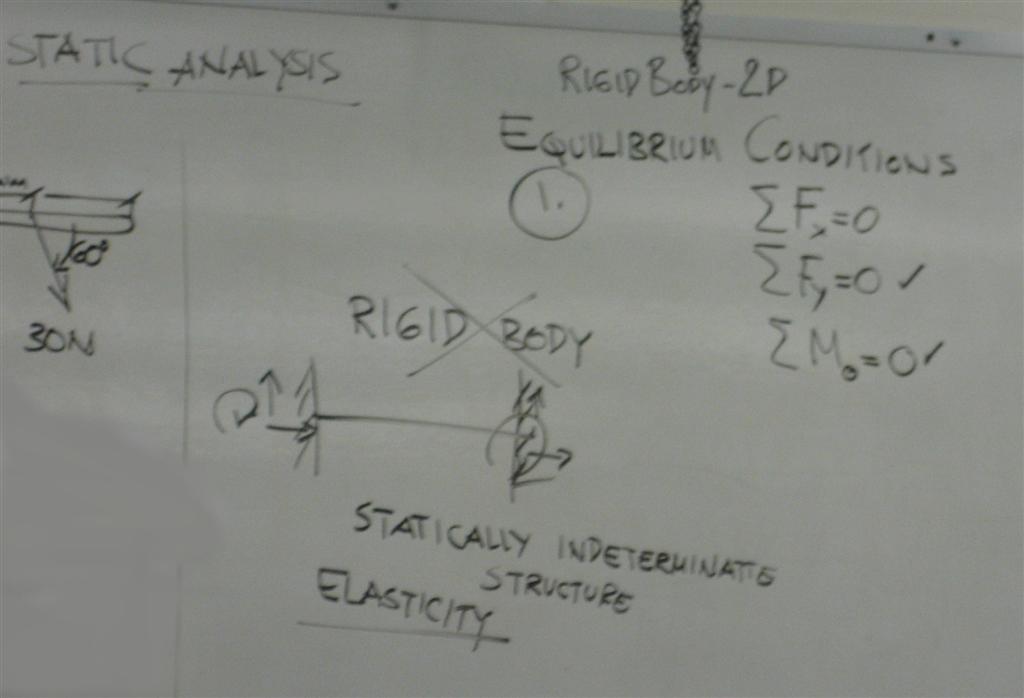 STATIC ANALYSIS
RIGID BODY-2D
EQUILIBRIUM CONDITIONS
1.
ΣFx=0
ΣFy=0 ✓
ΣMo=0 ✓
60°
30N
RIGID BODY
STATICALLY INDETERMINATE
STRUCTURE
ELASTICITY